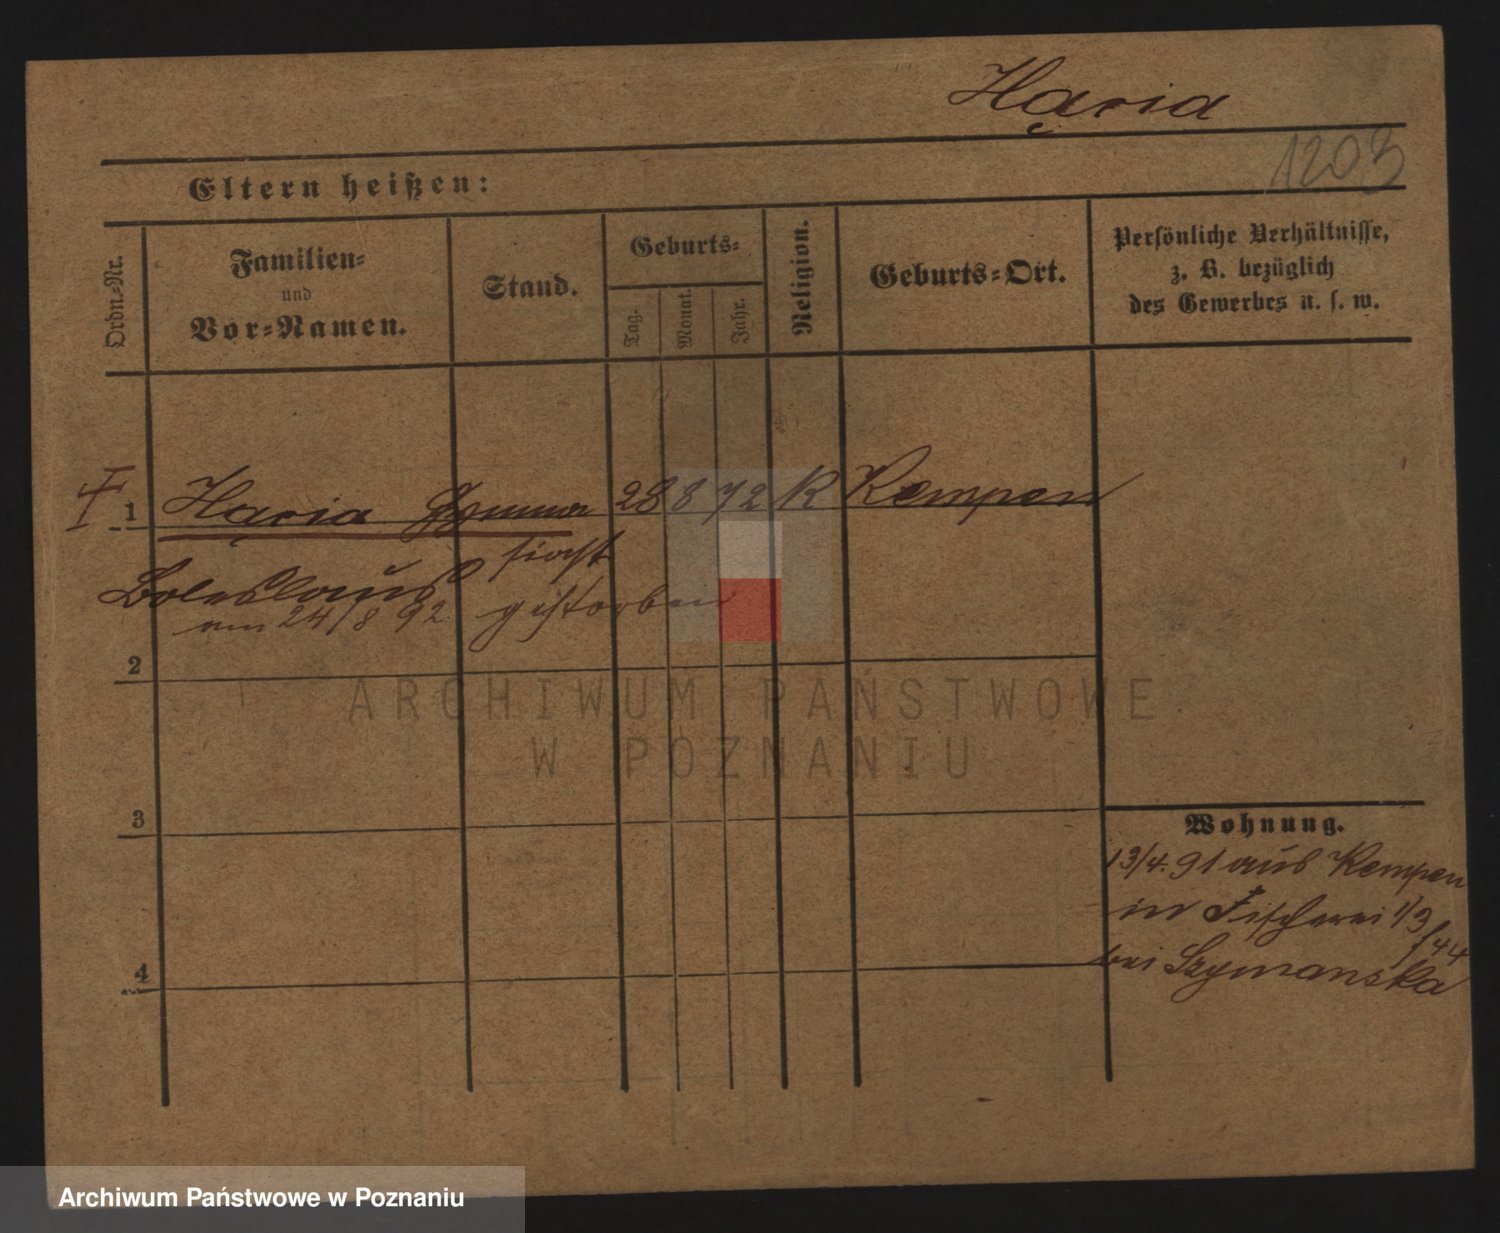 Hąria
1203
Eltern heißen:
Ordn.-Nr.
Familien-
und
Vor-Namen.
Stand.
Geburts-
Tag.
Monat.
Jahr.
Religion.
Geburts-Ort.
Persönliche Verhältnisse,
z. B. bezüglich
des Gewerbes u. s. w.
1 Hąria 28 8 72 K Kempen
Boleslaus
am 24/8 92 gestorben
2
3
4
Wohnung.
13/4. 91 aus Kempen
in Fischerei 1/3
/44
bei Szymanska
ARCHIWUM PAŃSTWOWE
W POZNANIU
Archiwum Państwowe w Poznaniu